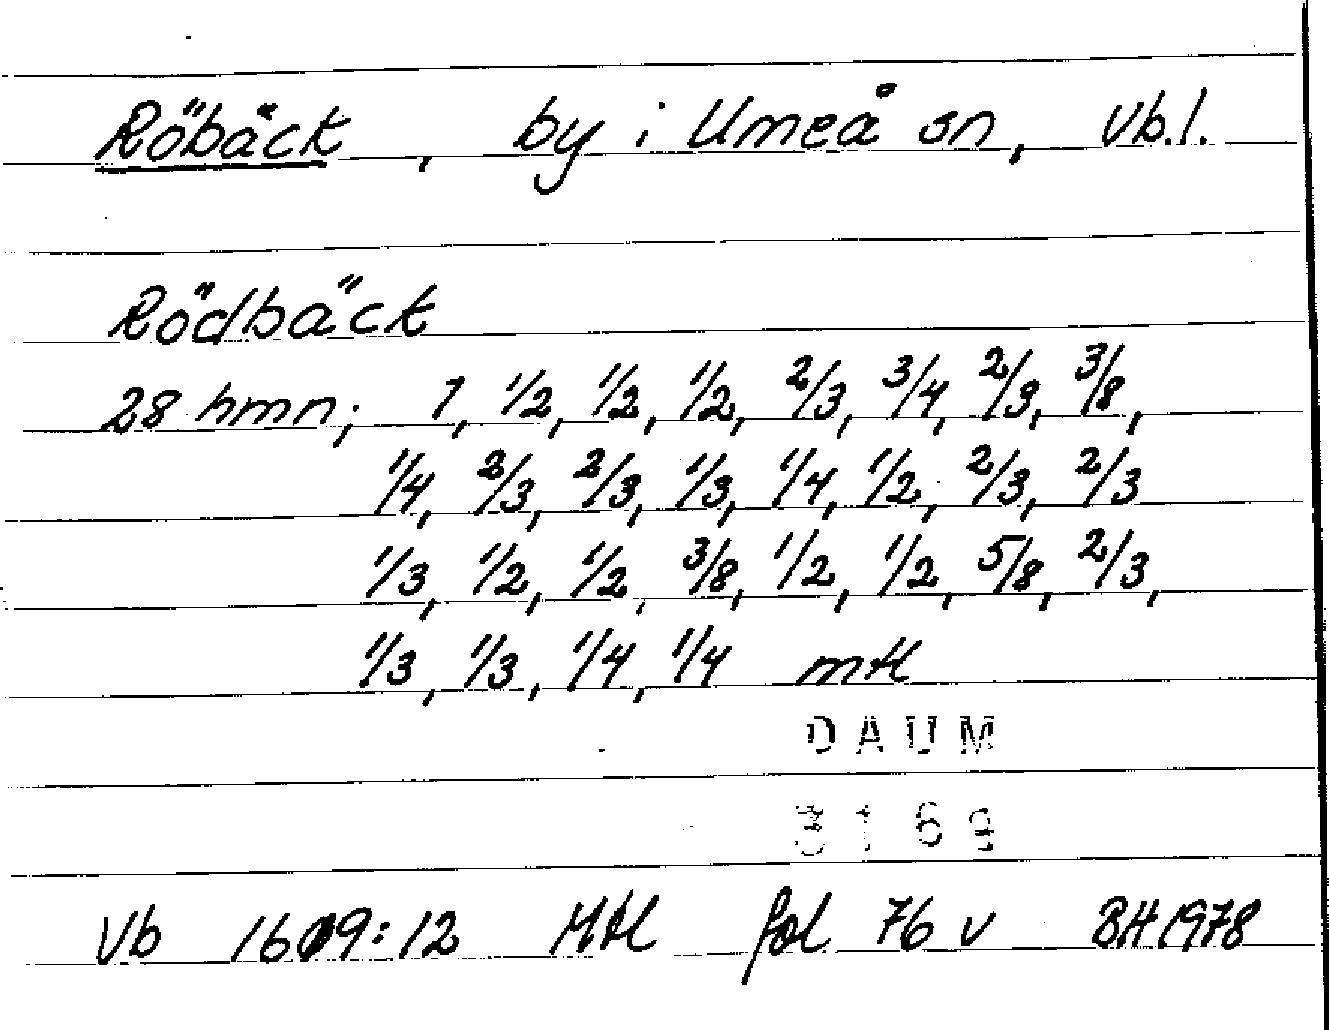 Röbäck, by i Umeå sn, Vb.l.
Rödbäck
28 hmn; 1, 1/2, 1/2, 1/2, 2/3, 3/4, 2/3, 3/8,
1/4, 2/3, 2/3, 1/3, 1/4, 1/2, 2/3, 2/3
1/3, 1/2, 1/2, 3/8, 1/2, 1/2, 5/8, 2/3,
1/3, 1/3, 1/4, 1/4 mtl
DAUM
3169
Vb 1609:12 Mtl fol 76 v BH 1978